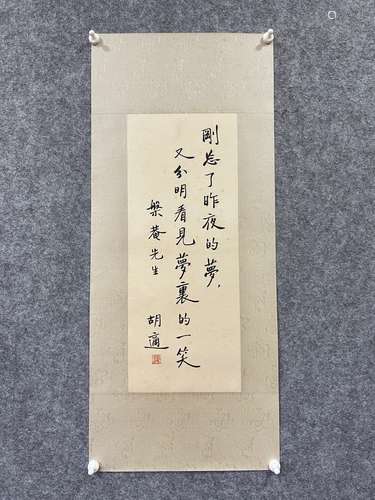 剛忘了昨夜的夢，
又分明看見夢裏的一笑
槃菴先生
胡適